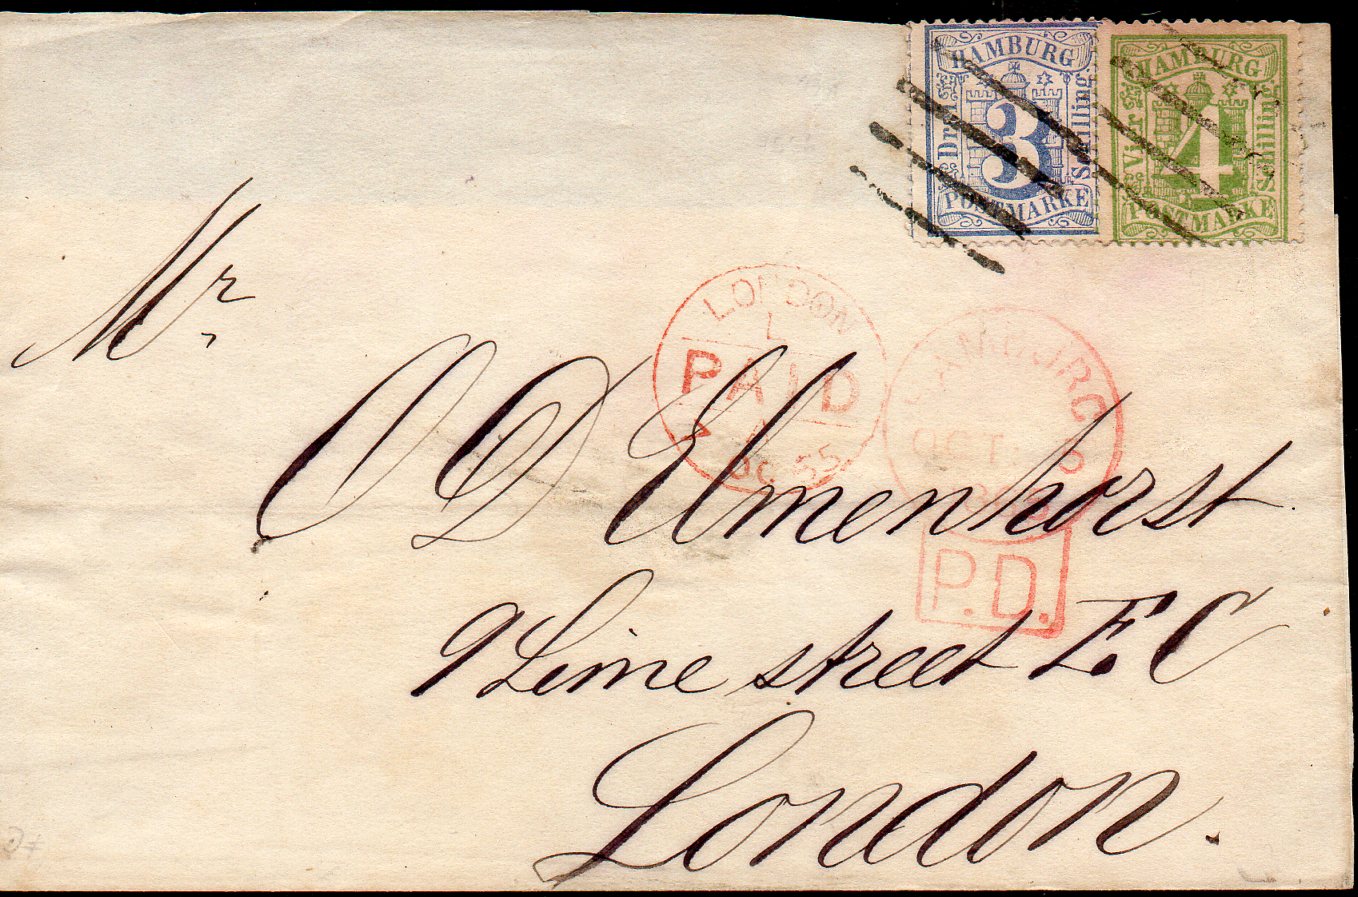 HAMBURG
3
Schilling
POSTMARKE
HAMBURG
Vier
4
Schilling
POSTMARKE
Mr
LONDON
PAID
OC
HAMBURG
OCT. 5
O D Elmenhorst
P.D.
9 Lime street E.C
London.